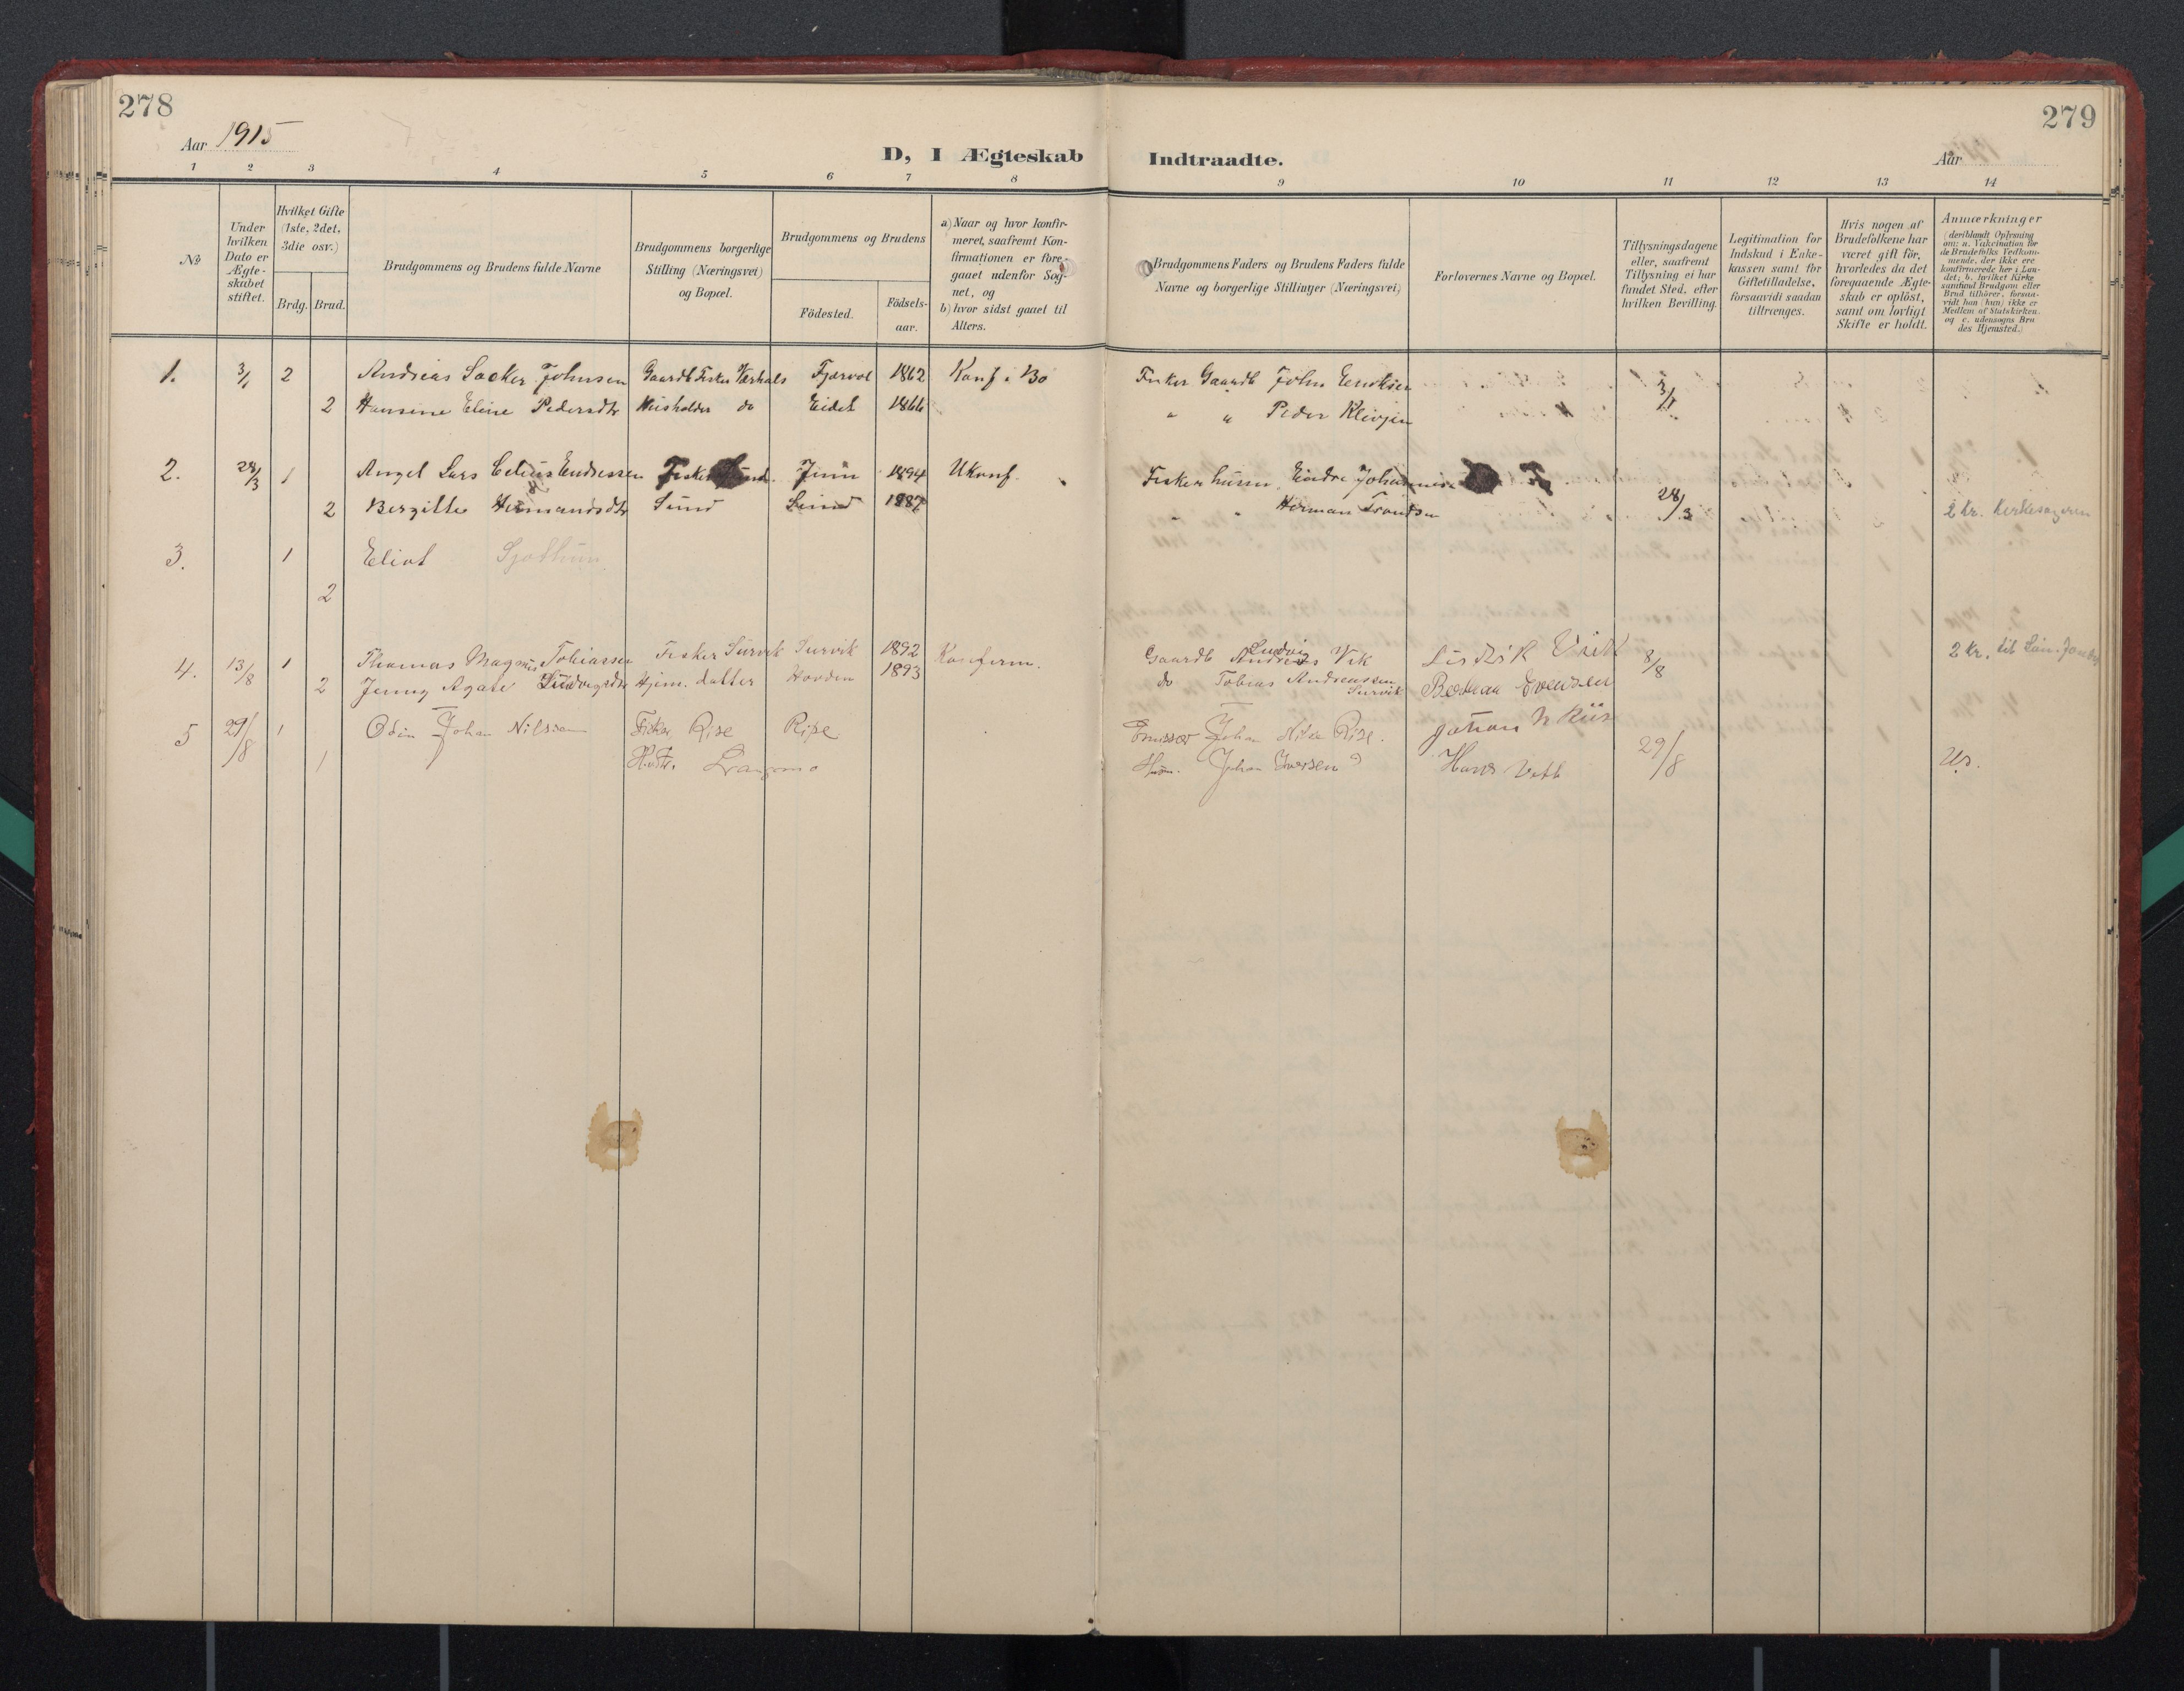 278
279
Aar 1915
D, I Ægteskab Indtraadte.
Aar
1 2 3 4 5 6 7 8 9 10 11 12 13 14
No
Under hvilken Dato er Ægte-skabet stiftet.
Hvilket Gifte (1ste, 2det, 3die osv.)
Brdg. Brud.
Brudgommens og Brudens fulde Navne
Brudgommens borgerlige Stilling (Næringsvei) og Bopæl.
Brudgommens og Brudens
Födested. Födsels-aar.
a) Naar og hvor konfir-meret, saafremt Kon-firmationen er fore-gaaet udenfor Sog-net, og
b) hvor sidst gaaet til Alters.
Brudgommens Faders og Brudens Faders fulde Navne og borgerlige Stillinger (Næringsvei)
Forlovernes Navne og Bopæl.
Tillysningsdagene eller, saafremt Tillysning ei har fundet Sted, efter hvilken Bevilling.
Legitimation for Indskud i Enke-kassen samt for Giftetilladelse, forsaavidt saadan tiltrænges.
Hvis nogen af Brudefolkene har været gift för, hvorledes da det foregaaende Ægte-skab er oplöst, samt om lovligt Skifte er holdt.
Anmærkninger (deriblandt Oplysning om: a. Vakcination for de Brudefolks Vedkom-mende, der ikke ere konfirmerede her i Lan-det; b. hvilket Kirke-samfund Brudgom eller Brud tilhörer, forsaa-vidt han (hun) ikke er Medlem af Statskirken. og c. udensogns Bru-des Hjemsted.)
1. 3/1 2 Andreas Johnsen Gaardb Fisker 1862 Konf i Bö Fisker Gaardb John 3/1
2 Hansine Eline Pedersdtr Husholder do Eidet 1866 " " Peder
2. 28/3 1 Angel Lars Endressen Fisker 1894 Ukonf. Fisker husm. Endre
2 Bergitte Hermandsdtr Sund Sund 1887 " " Herman 28/3 2 kr. Kirkesangeren
3. 1 Eliot
2
4. 13/8 1 Thomas Magnus Tobiassen Fisker Survik Survik 1892 Konferm. Gaardb Andreas Ludvig Vik Vik 8/8 2 kr. til
2 Jenny Agate Ludvigsdtr Hjem. datter Hovden 1893 do Tobias Andreassen Survik Evensen
5 29/8 1 Odin Johan Nilssen Fisker Rise Rise Johan Rise. Johan N 29/8
1 Husm. Johan Iversen Hans